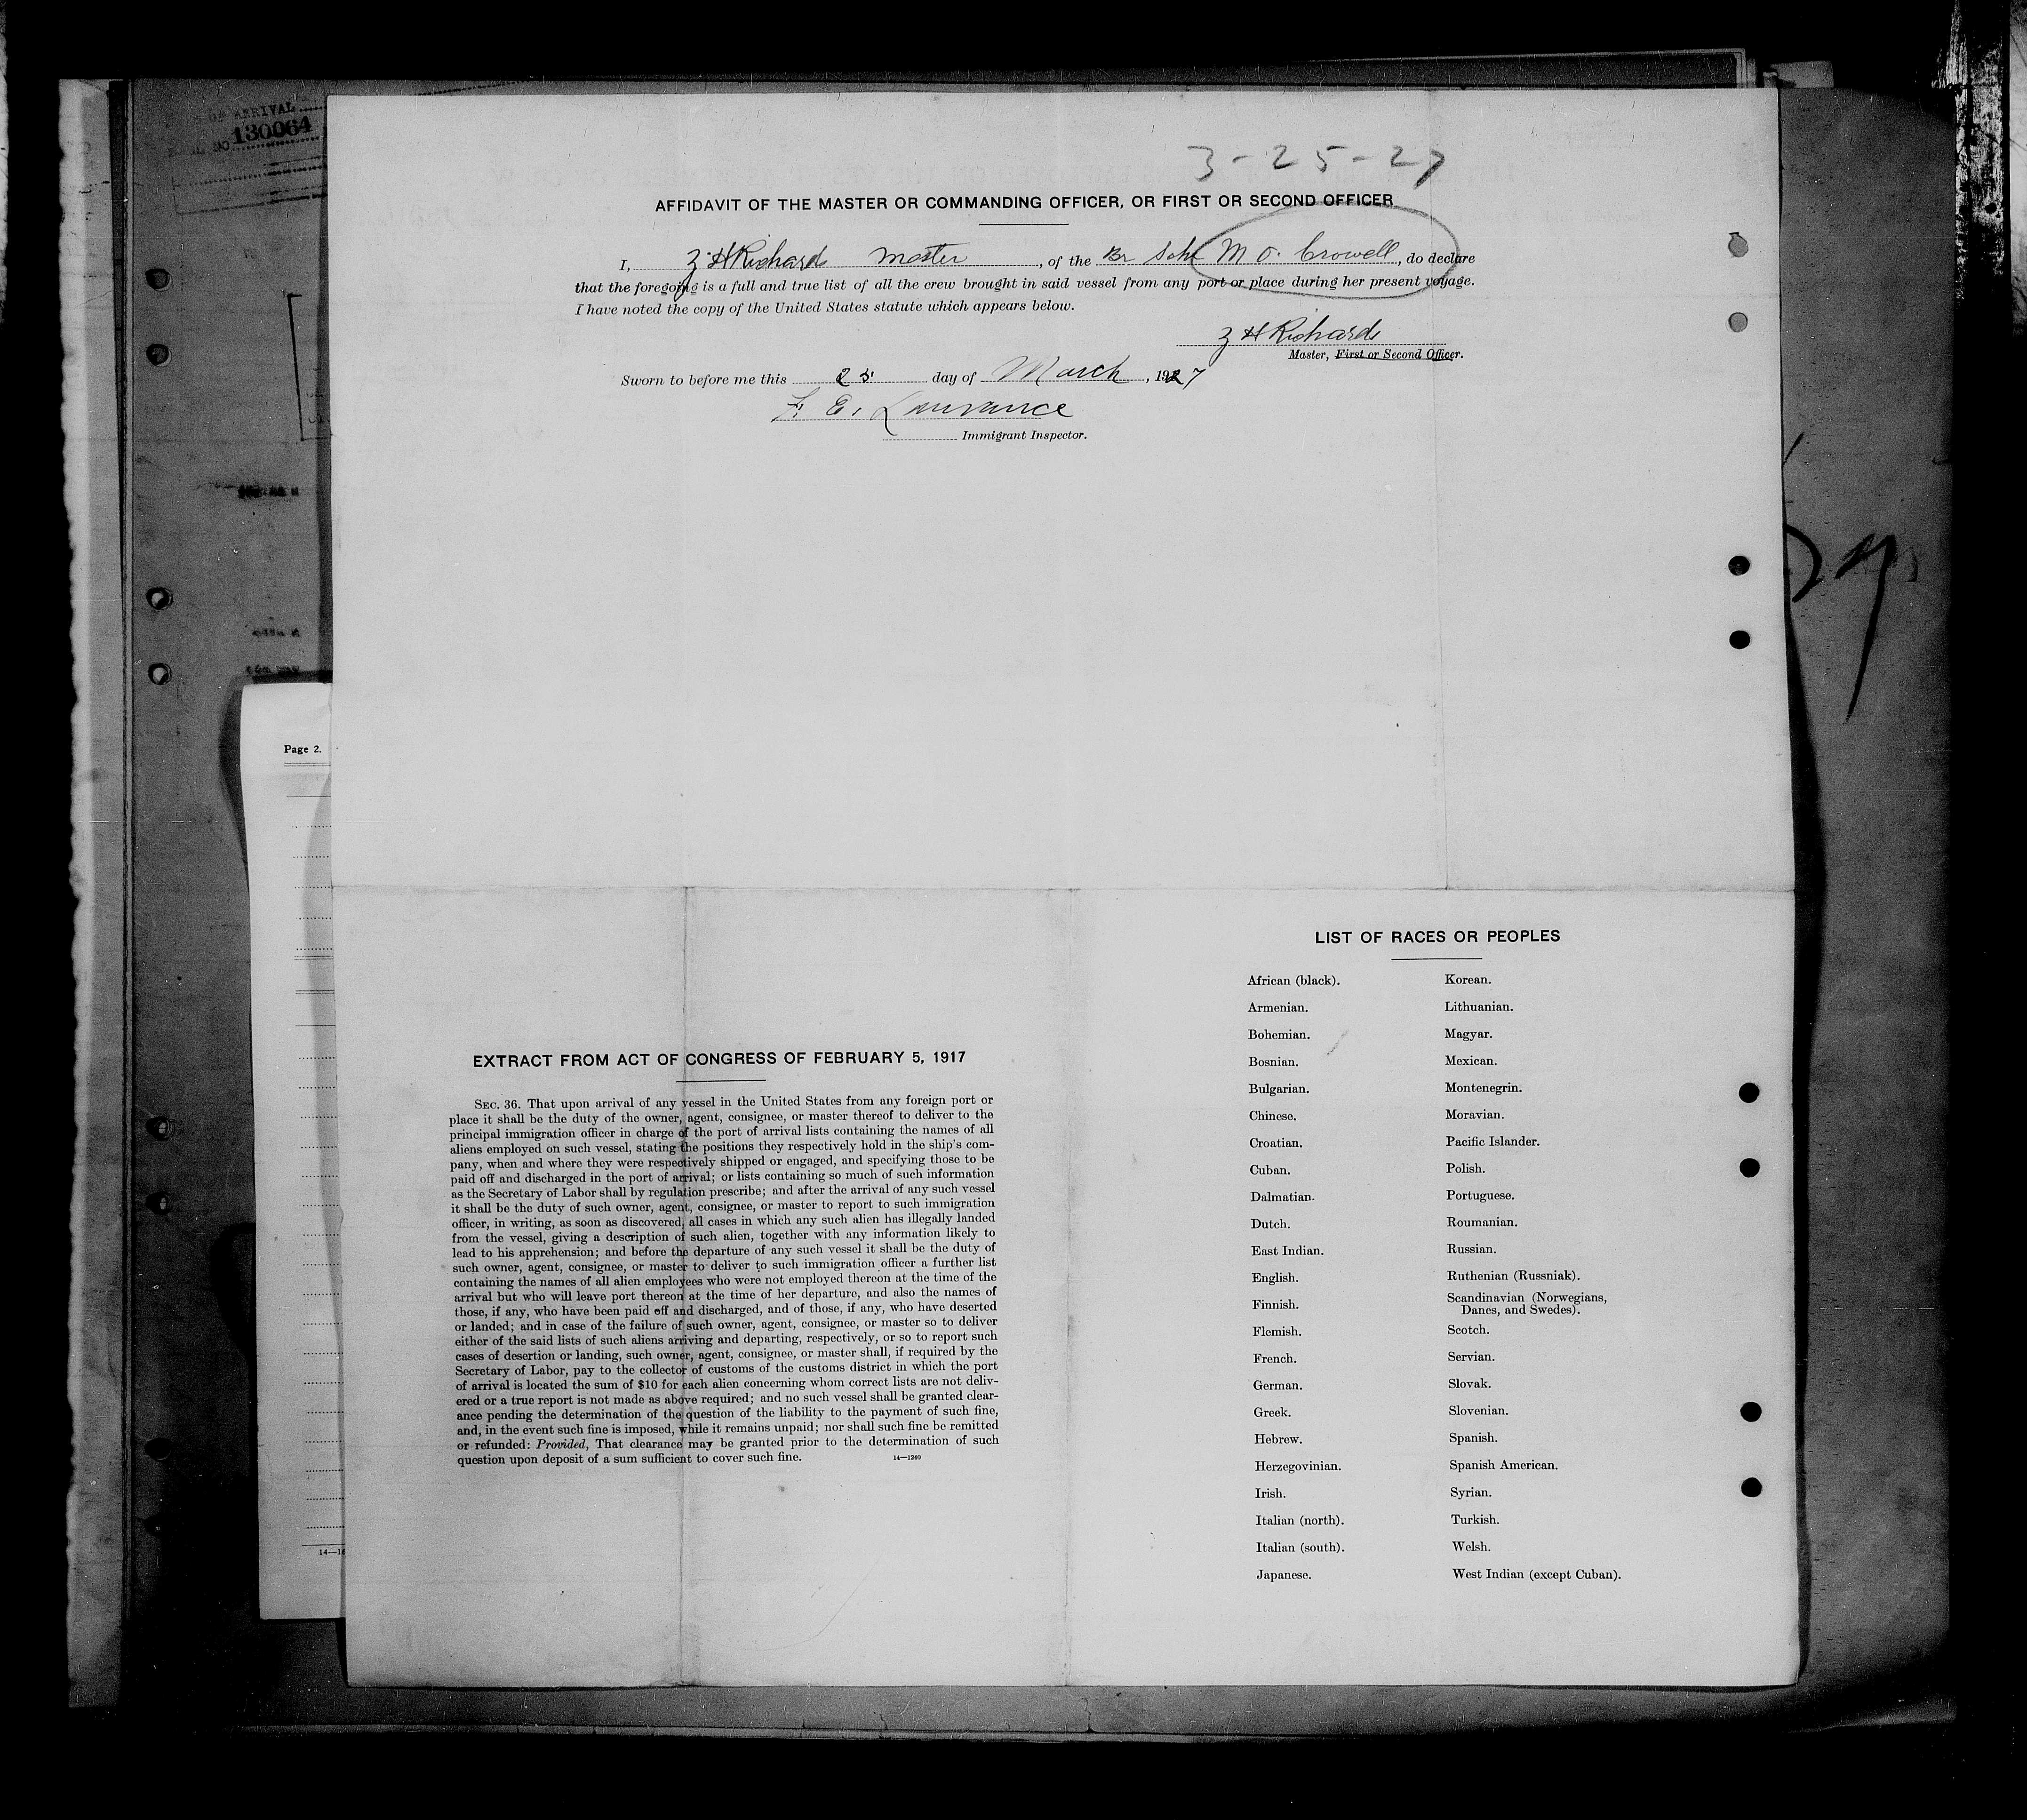 OF ARRIVAL
NO. 130064
3-25-27
AFFIDAVIT OF THE MASTER OR COMMANDING OFFICER, OR FIRST OR SECOND OFFICER
I, Z H Richards Master, of the Br Schr M O. Crowell, do declare
that the foregoing is a full and true list of all the crew brought in said vessel from any port or place during her present voyage.
I have noted the copy of the United States statute which appears below.
Z H Richards
Master, First or Second Officer.
Sworn to before me this 25 day of March, 1927
F. E. Lawrance
Immigrant Inspector.
Page 2.
EXTRACT FROM ACT OF CONGRESS OF FEBRUARY 5, 1917
SEC. 36. That upon arrival of any vessel in the United States from any foreign port or
place it shall be the duty of the owner, agent, consignee, or master thereof to deliver to the
principal immigration officer in charge of the port of arrival lists containing the names of all
aliens employed on such vessel, stating the positions they respectively hold in the ship's com-
pany, when and where they were respectively shipped or engaged, and specifying those to be
paid off and discharged in the port of arrival; or lists containing so much of such information
as the Secretary of Labor shall by regulation prescribe; and after the arrival of any such vessel
it shall be the duty of such owner, agent, consignee, or master to report to such immigration
officer, in writing, as soon as discovered, all cases in which any such alien has illegally landed
from the vessel, giving a description of such alien, together with any information likely to
lead to his apprehension; and before the departure of any such vessel it shall be the duty of
such owner, agent, consignee, or master to deliver to such immigration officer a further list
containing the names of all alien employees who were not employed thereon at the time of the
arrival but who will leave port thereon at the time of her departure, and also the names of
those, if any, who have been paid off and discharged, and of those, if any, who have deserted
or landed; and in case of the failure of such owner, agent, consignee, or master so to deliver
either of the said lists of such aliens arriving and departing, respectively, or so to report such
cases of desertion or landing, such owner, agent, consignee, or master shall, if required by the
Secretary of Labor, pay to the collector of customs of the customs district in which the port
of arrival is located the sum of $10 for each alien concerning whom correct lists are not deliv-
ered or a true report is not made as above required; and no such vessel shall be granted clear-
ance pending the determination of the question of the liability to the payment of such fine,
and, in the event such fine is imposed, while it remains unpaid; nor shall such fine be remitted
or refunded: Provided, That clearance may be granted prior to the determination of such
question upon deposit of a sum sufficient to cover such fine.
14—1240
LIST OF RACES OR PEOPLES
African (black).
Armenian.
Bohemian.
Bosnian.
Bulgarian.
Chinese.
Croatian.
Cuban.
Dalmatian.
Dutch.
East Indian.
English.
Finnish.
Flemish.
French.
German.
Greek.
Hebrew.
Herzegovinian.
Irish.
Italian (north).
Italian (south).
Japanese.
Korean.
Lithuanian.
Magyar.
Mexican.
Montenegrin.
Moravian.
Pacific Islander.
Polish.
Portuguese.
Roumanian.
Russian.
Ruthenian (Russniak).
Scandinavian (Norwegians,
Danes, and Swedes).
Scotch.
Servian.
Slovak.
Slovenian.
Spanish.
Spanish American.
Syrian.
Turkish.
Welsh.
West Indian (except Cuban).